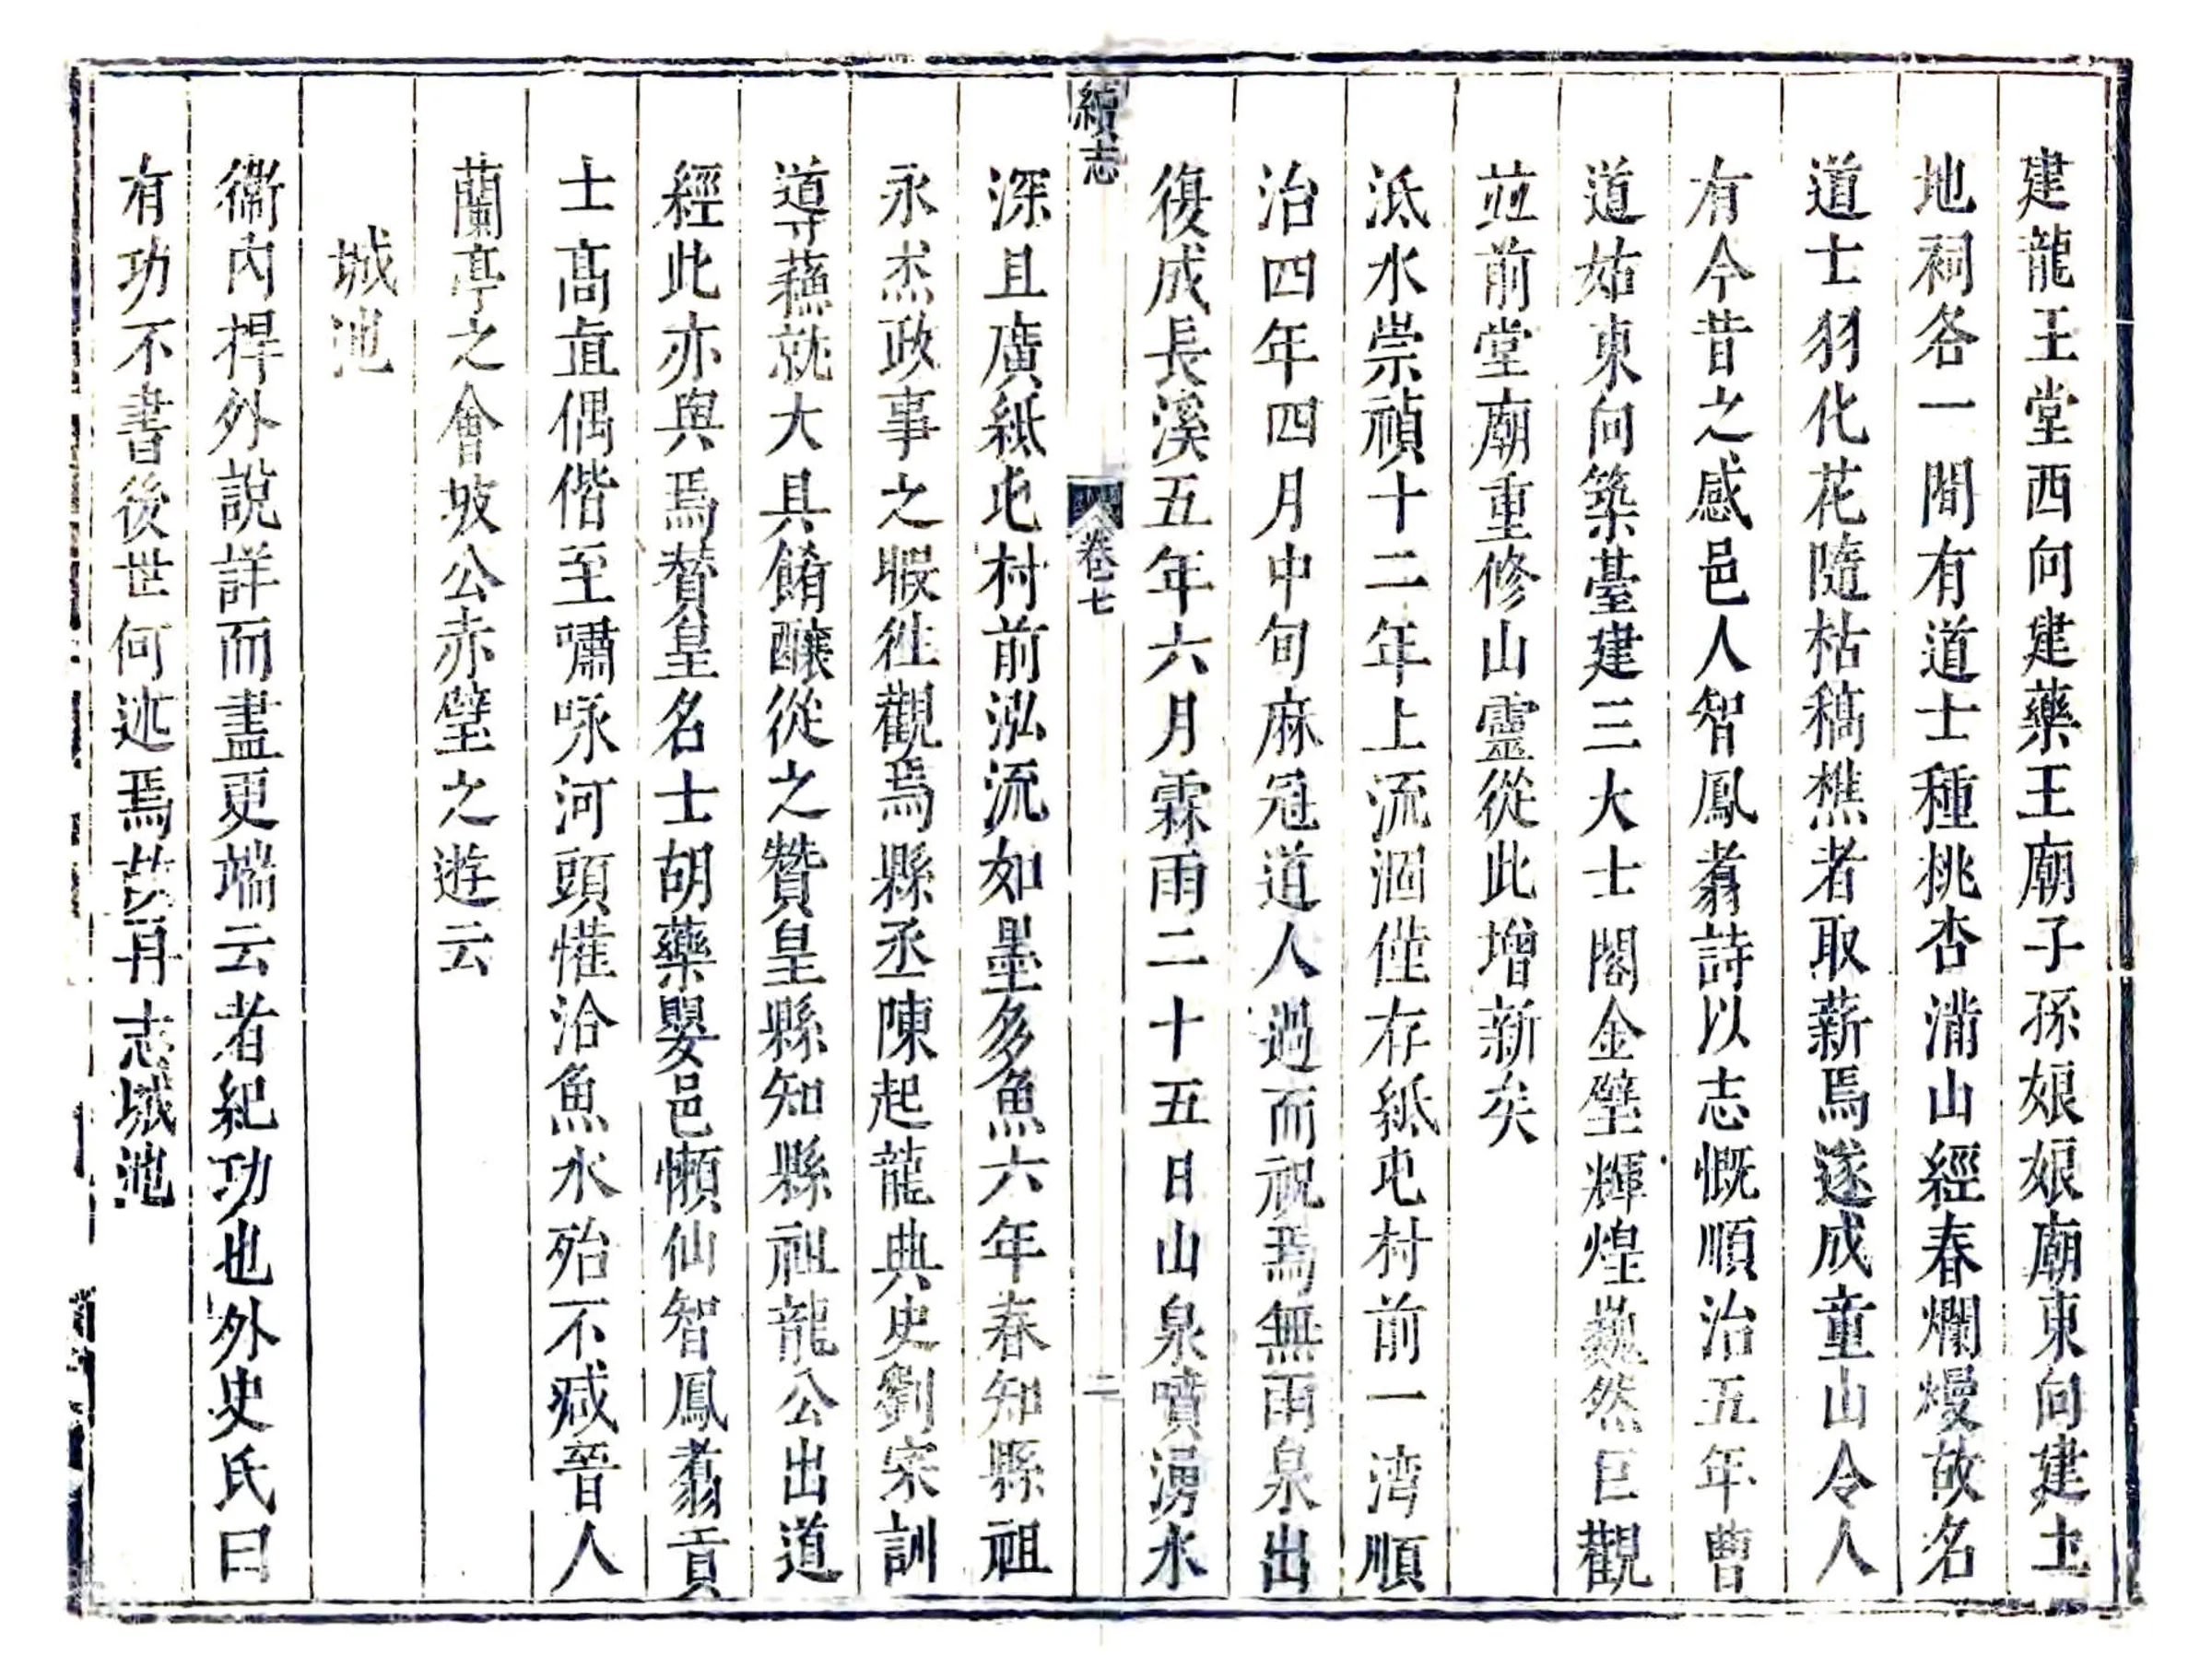 建龍王堂西向建藥王廟子孫娘娘廟東向建土
地祠各一間有道士種桃杏滿山經春爛熳故名
道士羽化花隨枯稿樵者取薪焉遂成童山令人
有今昔之感邑人智鳳翥詩以志慨順治五年曹
道姑東向築臺建三大士閣金壁輝煌巍然巨觀
並前堂廟重修山靈從此增新矣
泜水崇禎十二年上流涸僅存紙屯村前一湾順
治四年四月中旬麻冠道人過而祝焉無雨泉出
復成長溪五年六月霖雨二十五日山泉噴湧水
續志
卷七
二
深且廣紙屯村前泓流如墨多魚六年春知縣祖
永杰政事之暇徃觀焉縣丞陳起龍典史劉宗訓
導蘓就大具餚釀從之贊皇縣知縣祖龍公出道
經此亦與焉贊皇名士胡藥嬰邑懶仙智鳳翥貢
士高直偶偕至嘯咏河頭懽洽魚水殆不減晉人
蘭亭之會坡公赤壁之遊云
城池
衞內捍外說詳而盡更端云者紀功也外史氏曰
有功不書後世何述焉茲再志城池